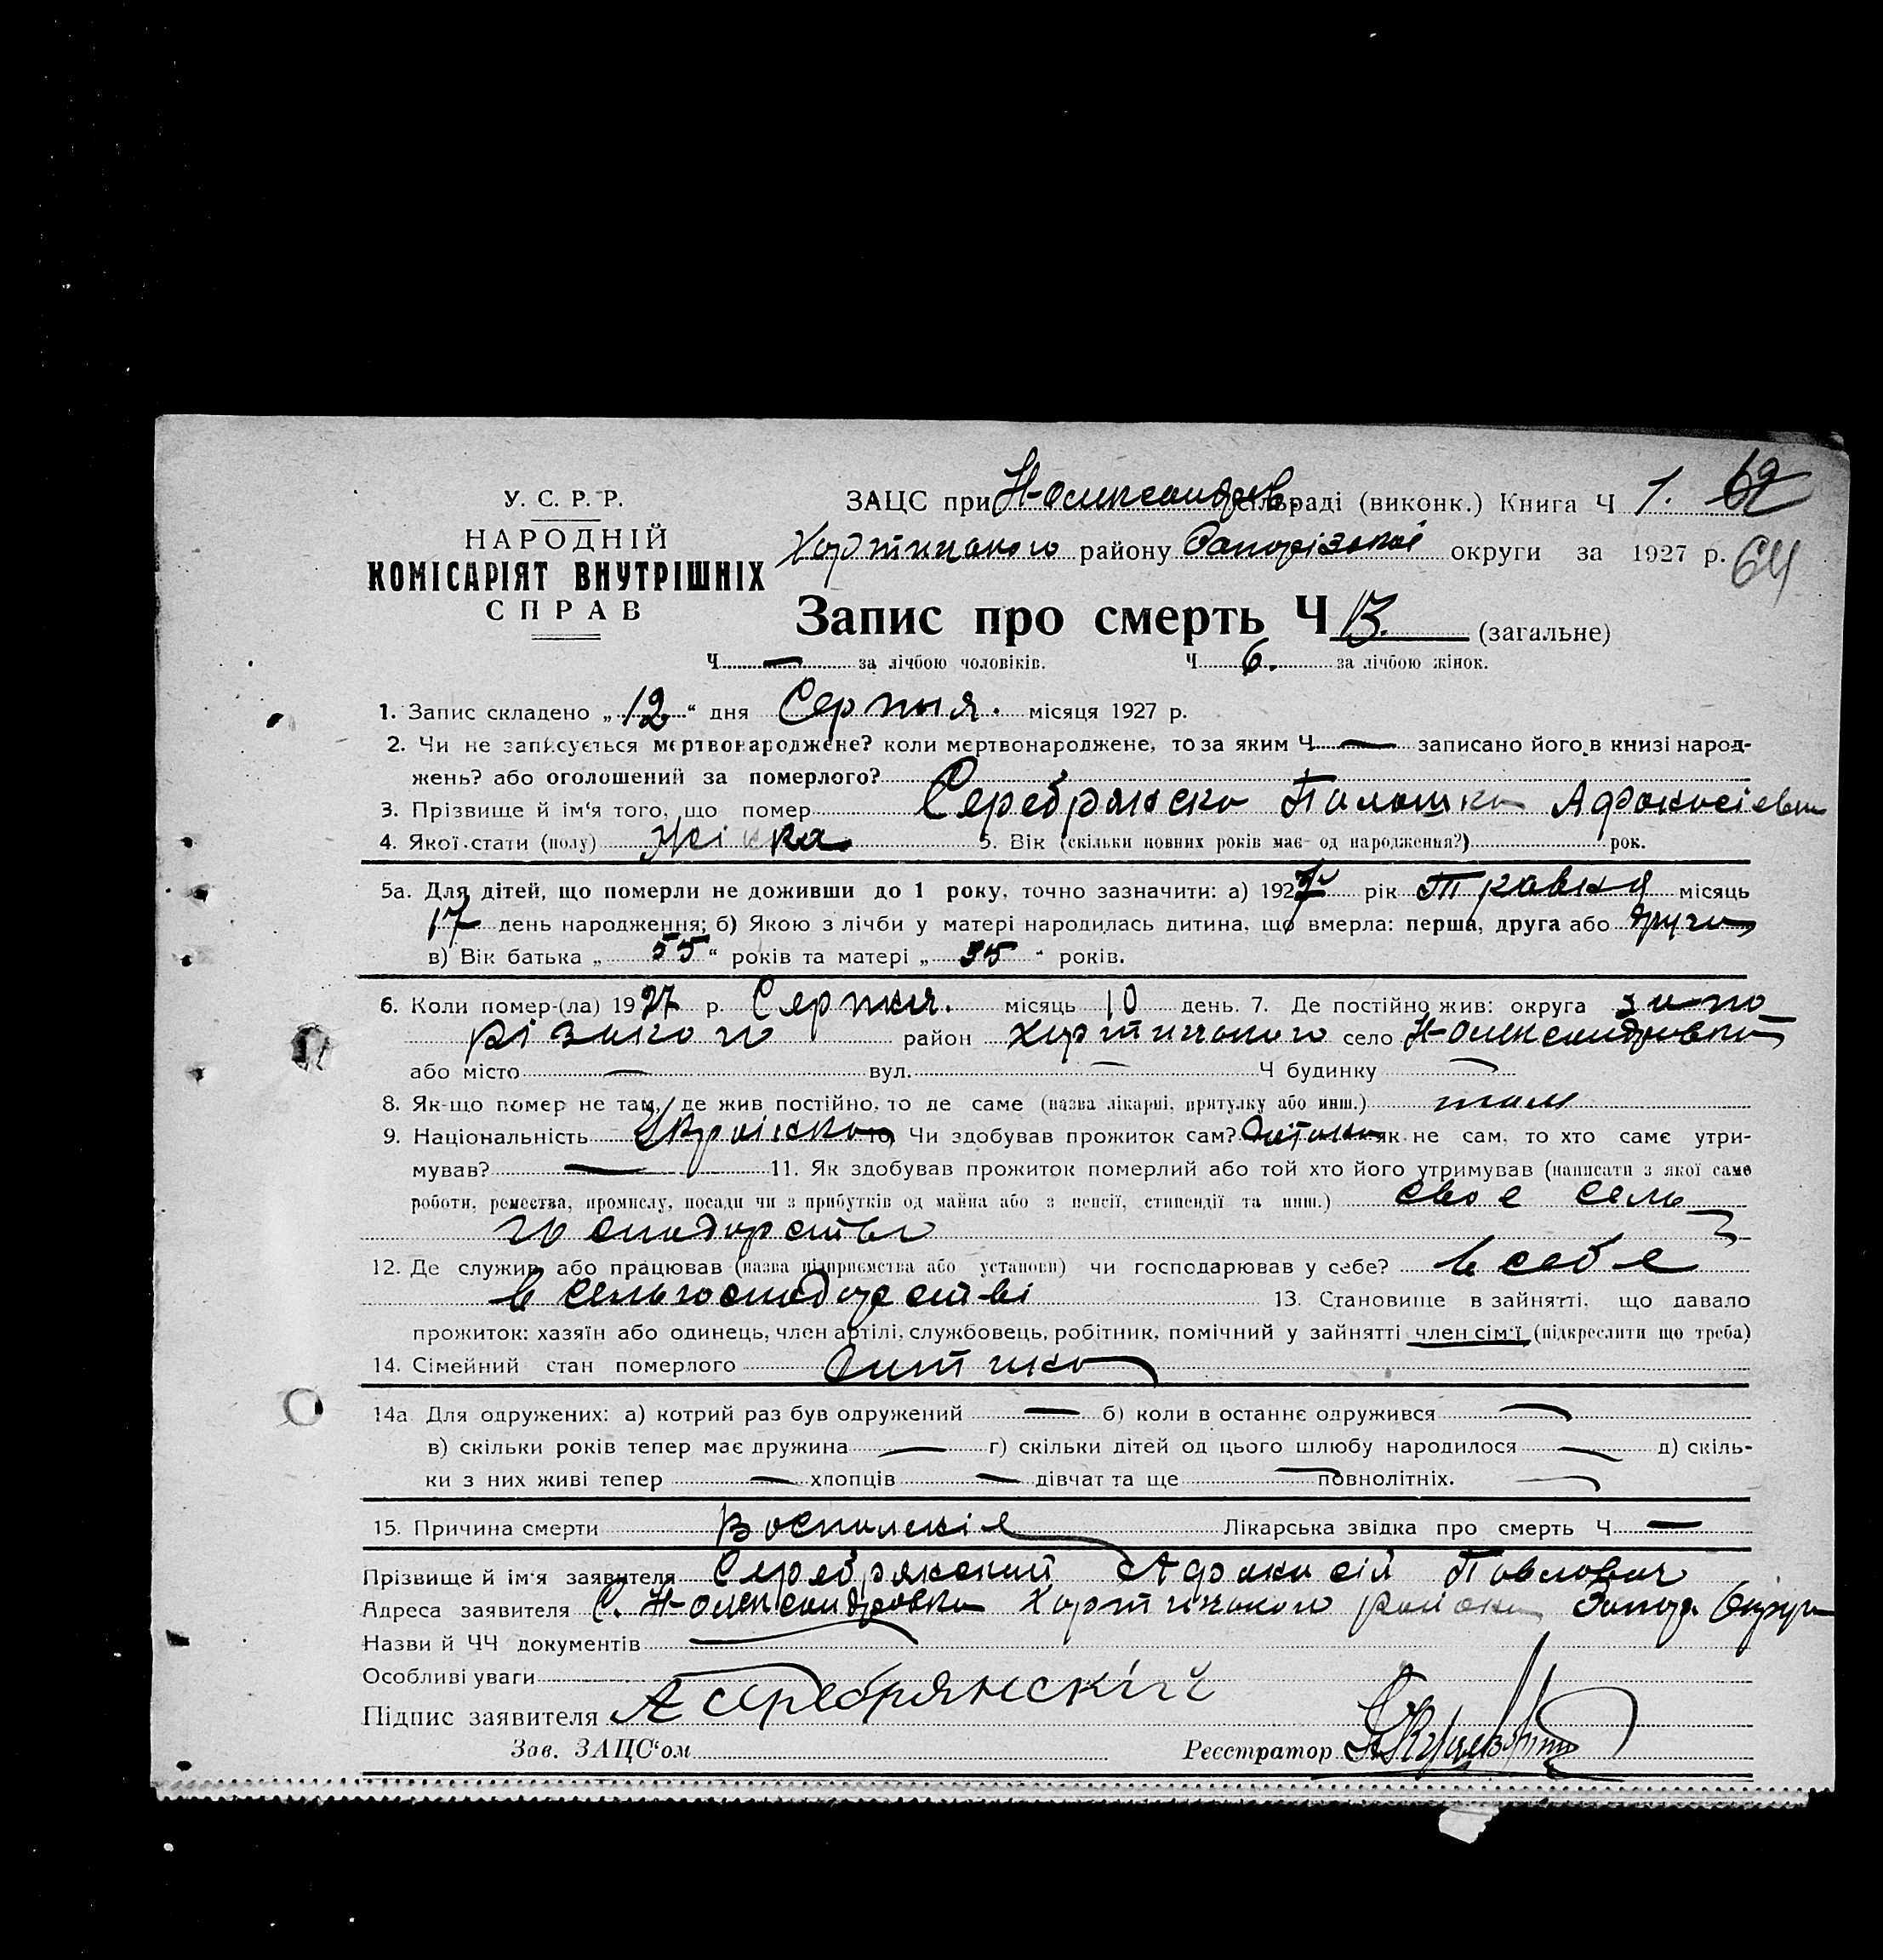 У. С. Р. Р.
НАРОДНІЙ
КОМІСАРІЯТ ВНУТРІШНІХ
СПРАВ
ЗАЦС при Н-Олександрів. сільраді (виконк.) Книга Ч 1. 62
Хортицького району Запорізької округи за 1927 р. 64
Запис про смерть Ч 13. (загальне)
Ч — за лічбою чоловіків. Ч 6. за лічбою жінок.
1. Запис складено „12“ дня Серпня. місяця 1927 р.
2. Чи не записується мертвонароджене? коли мертвонароджене, то за яким Ч — записано його в книзі народ-
жень? або оголошений за померлого?
3. Прізвище й ім'я того, що помер Серебрянска Палашка Афонасіевна
4. Якої стати (полу) Жінка 5. Вік (скільки повних років має од народження?) рок.
5а. Для дітей, що померли не доживши до 1 року, точно зазначити: а) 1927 рік Травня місяць
17 день народження; б) Якою з лічби у матері народилась дитина, що вмерла: перша, друга або друга
в) Вік батька „55“ років та матері „35“ років.
6. Коли помер-(ла) 1927 р. Серпня. місяць 10 день. 7. Де постійно жив: округа Запо
різького район Хортицького село Н-Олександровка
або місто — вул. — Ч будинку —
8. Як-що помер не там, де жив постійно, то де саме (назва лікарні, притулку або инш.) там
9. Національність Українка 10. Чи здобував прожиток сам? Дитина як не сам, то хто саме утри-
мував? — 11. Як здобував прожиток померлий або той хто його утримував (написати з якої саме
роботи, ремества, промислу, посади чи з прибутків од майна або з пенсії, стипендії та инш.) своє сель
господарства
12. Де служив або працював (назва підприємства або установи) чи господарював у себе? в себе
в сельгосподарстві 13. Становище в зайнятті, що давало
прожиток: хазяїн або одинець, член артілі, службовець, робітник, помічний у зайнятті член сім'ї (підкреслити що треба)
14. Сімейний стан померлого Дитина
14а Для одружених: а) котрий раз був одружений — б) коли в останнє одружився —
в) скільки років тепер має дружина — г) скільки дітей од цього шлюбу народилося — д) скіль-
ки з них живі тепер — хлопців — дівчат та ще — повнолітніх.
15. Причина смерти Воспиленіє Лікарська звідка про смерть Ч —
Прізвище й ім'я заявителя Серебрянский Афанасій Павлович
Адреса заявителя С. Н-Олександровка Хортицького району Запор. Округи
Назви й ЧЧ документів —
Особливі уваги
Підпис заявителя А Серебрянскій
Зав. ЗАЦС'ом Реєстратор